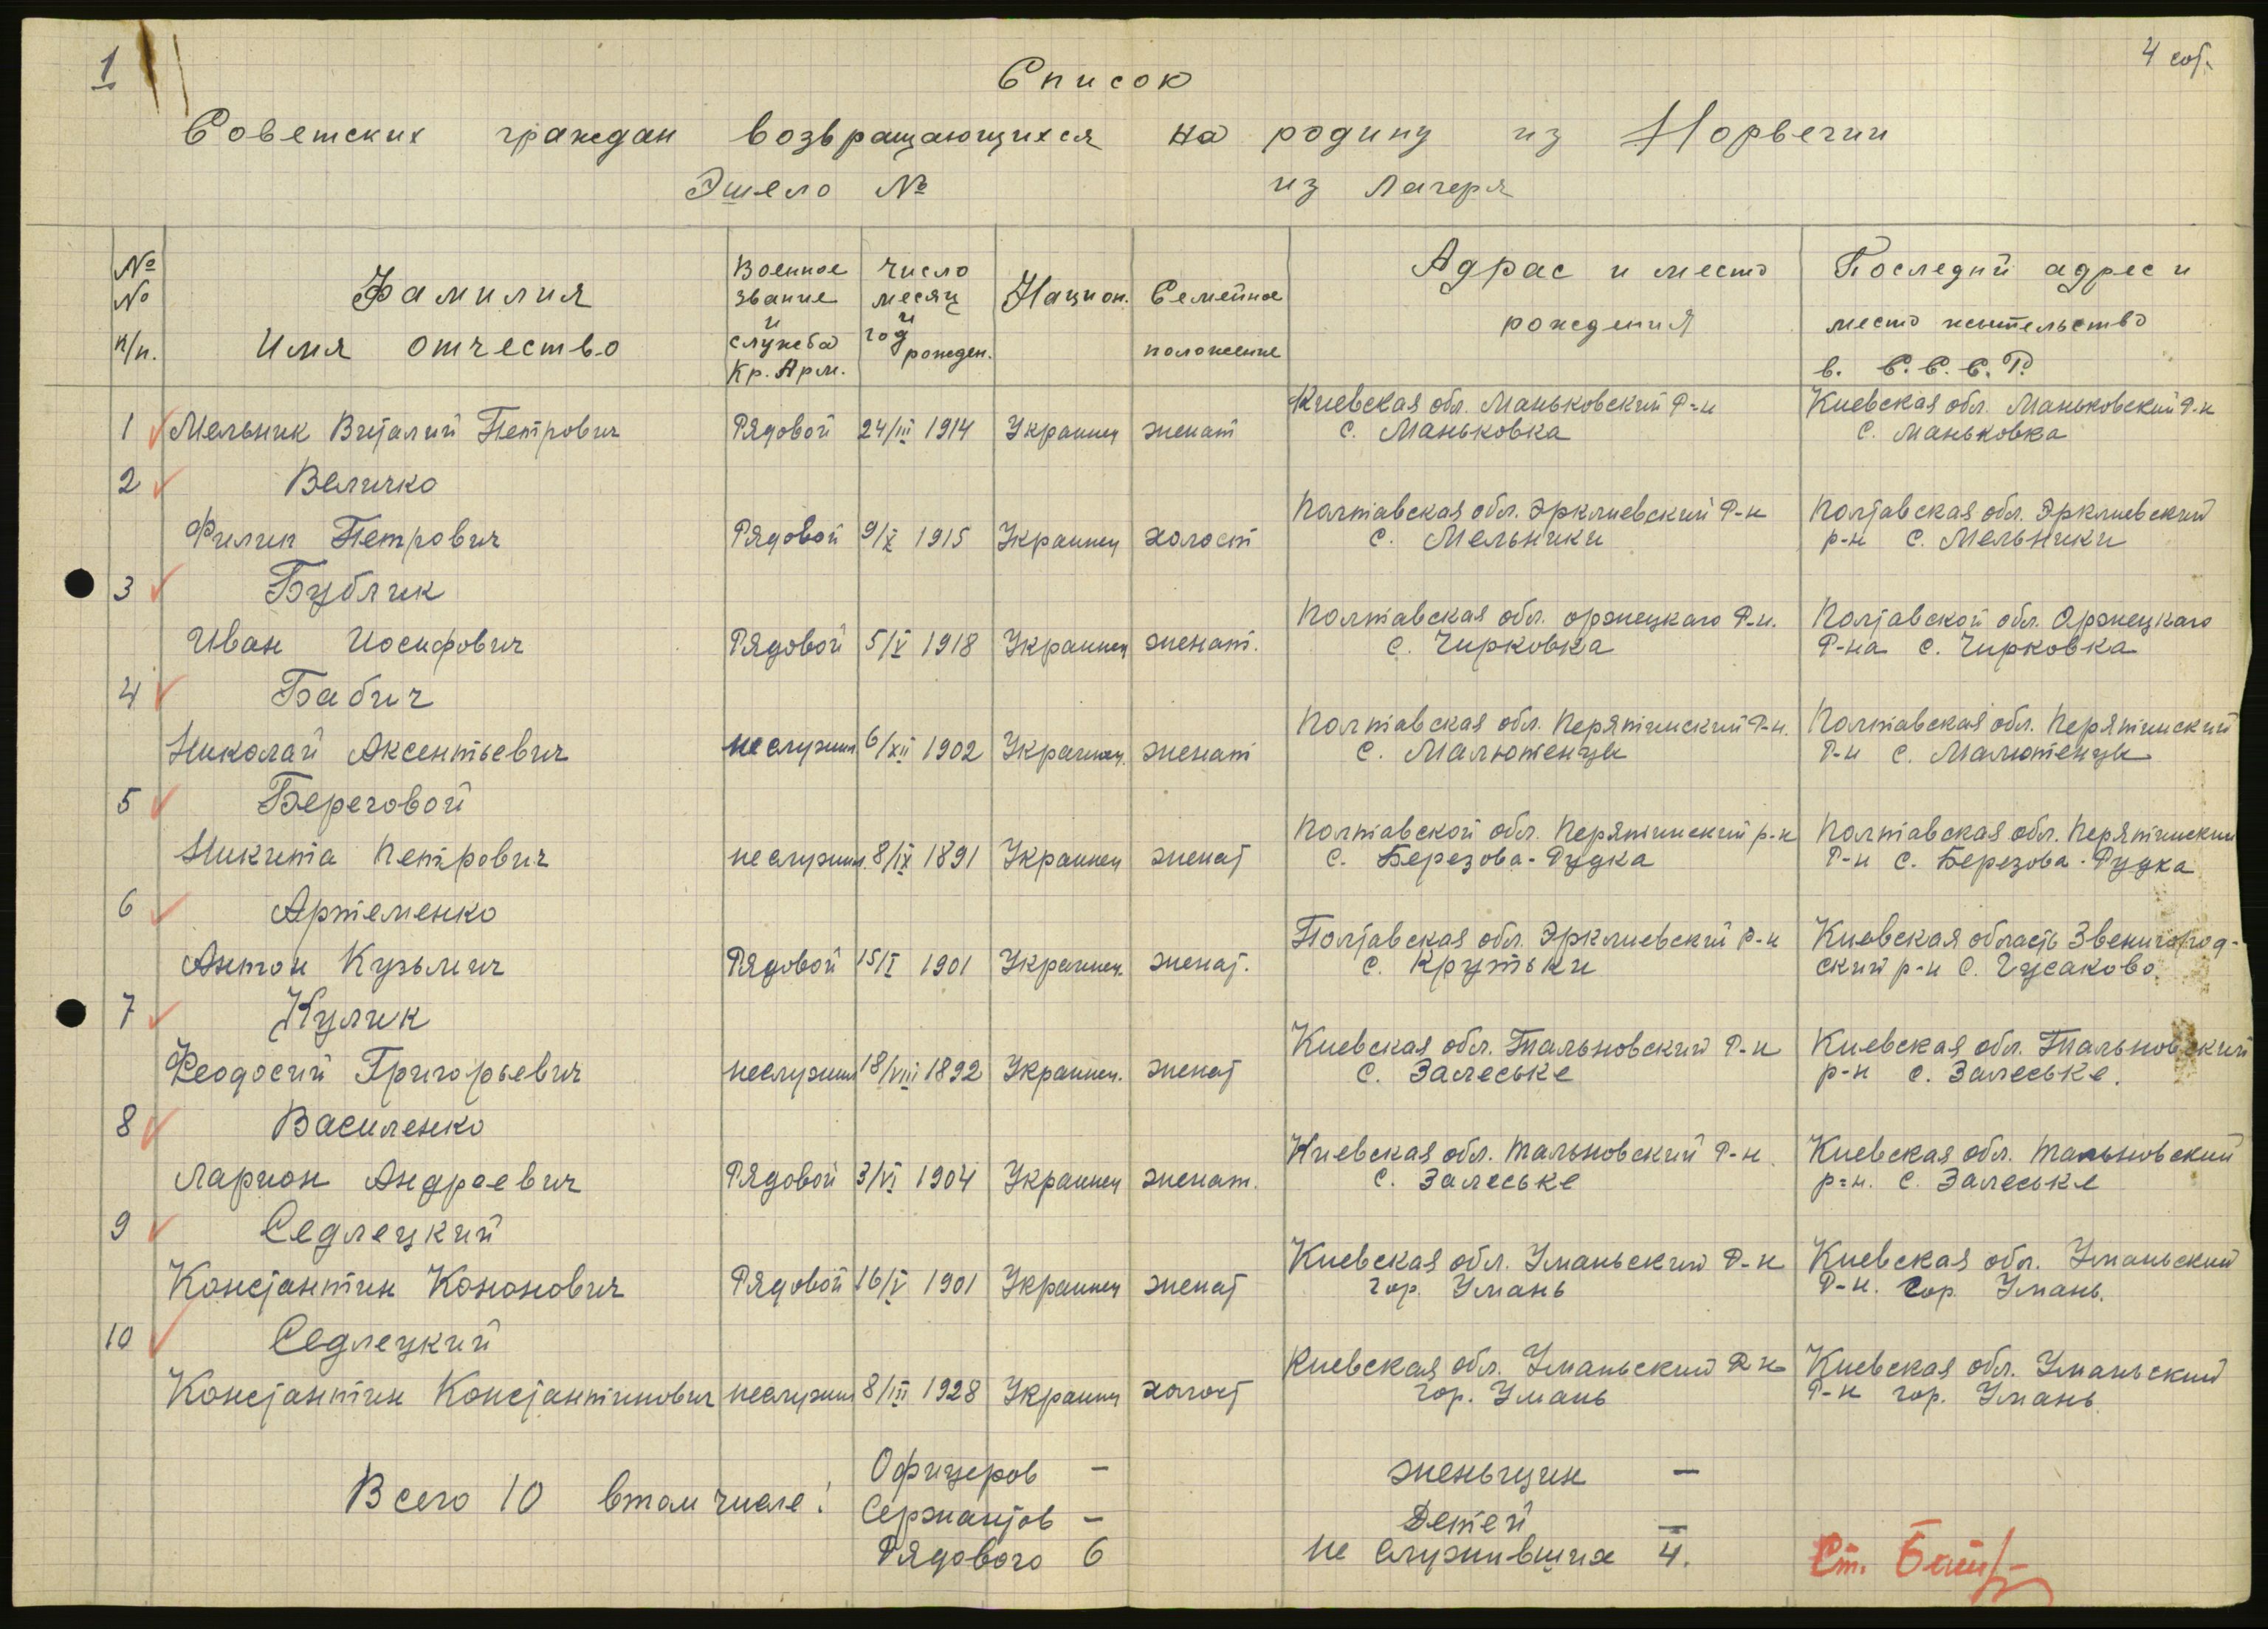 1
4 соб.
Список
Советских граждан возвращающихся на родину из Норвегии
Эшело № из Лагеря
№ № п/п.
Фамилия Имя отчество
Военное звание и служба Кр. Арм.
Число месяц и год рожден.
Национ.
Семейное положение
Адрас и место рождения
Последний адрес и место жительство в. С.С.С.Р.
1 Мельник Виталий Петрович Рядовой 24/III 1914 Украинец женат Киевская обл. Маньковский Р-н С. Маньковка Киевская обл. Маньковский Р-н С. Маньковка
2 Величко
Филип Петрович Рядовой 9/X 1915 Украинец холост Полтавская обл. Эрклиевский Р-н С. Мельники Полтавская обл. Эрклиевский р-н С. Мельники
3 Бублик
Иван Иосифович Рядовой 5/V 1918 Украинец женат. Полтавская обл. оржецкаго Р-н. С. Чирковка Полтавской обл. Оржецкаго Р-на С. Чирковка
4 Бабич
Николай Аксентьевич неслужил 6/XII 1902 Украинец. женат Полтавская обл. Перятинский Р-н. С. Малютенци Полтавская обл. Перятинский Р-н С. Малютенци
5 Береговой
Никита Петрович неслужил. 8/IX 1891 Украинец женат Полтавской обл. Перятинский р-н С. Березова-Рудка Полтавская обл. Перятинский Р-н С. Березова-Рудка
6 Артеменко
Антон Кузьмич Рядовой 15/I 1901 Украинец. женат. Полтавская обл. Эрклиевский Р-н С. Крутьки Киевская область Звенигородский р-н С. Гусаково.
7 Кулик
Феодосий Григорьевич неслужил 18/VIII 1892 Украинец. женат Киевская обл. Тальновский Р-н С. Залеське Киевская обл. Тальновский р-н С. Залеське.
8 Василенко
Ларион Андреевич Рядовой 3/VI 1904 Украинец женат. Киевская обл. Тальновский Р-н. С. Залеське Киевская обл. Тальновский р-н. С. Залеське
9 Седлецкий
Константин Кононович Рядовой 16/V 1901 Украинец женат Киевская обл. Уманьский Р-н гор. Умань Киевская обл. Уманьский Р-н. гор. Умань.
10 Седлецкий
Константин Константинович неслужил 8/III 1928 Украинец холост Киевская обл. Уманьский Р-н гор. Умань Киевская обл. Уманьский Р-н гор. Умань
Всего 10 втом числе:
Офицеров -
Сержантов -
Рядового 6
женьщин -
Детей -
не служивших 4.
Ст.